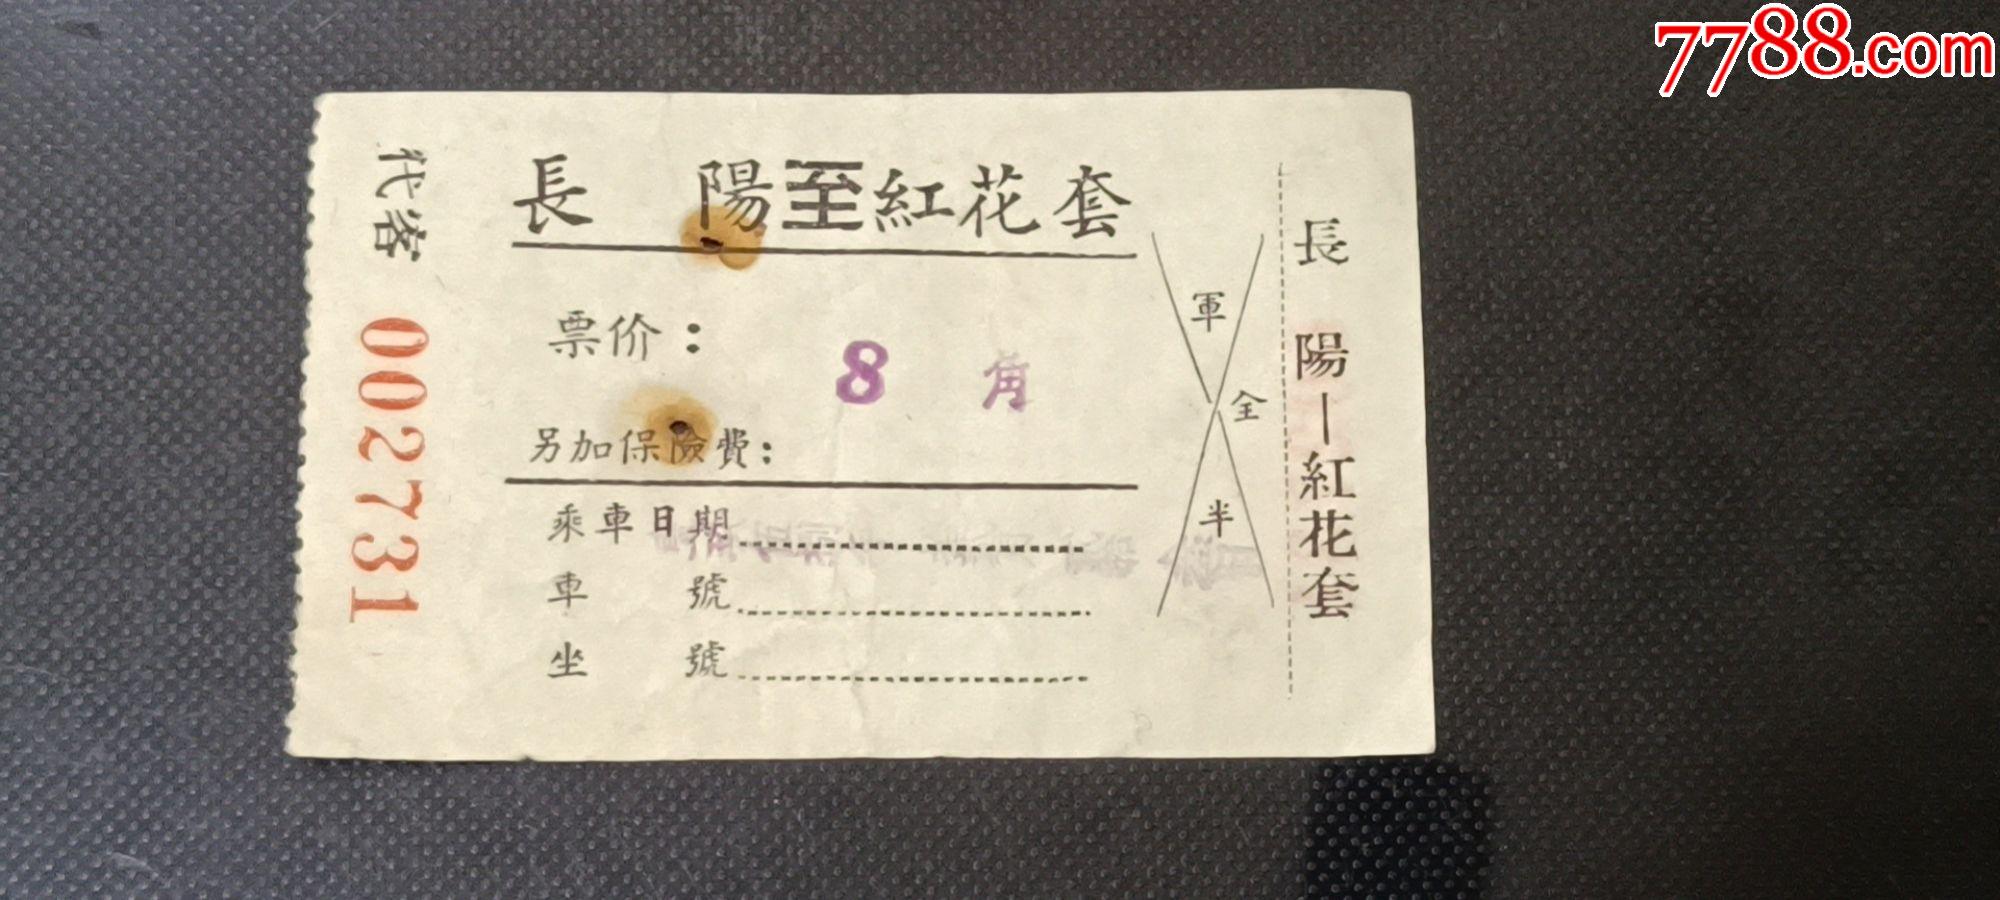 7788.com
代客 002731
長 陽至紅花套
票价: 8 角
另加保險費:
乘車日期
車 號
坐 號
軍
全
半
長 陽—紅花套